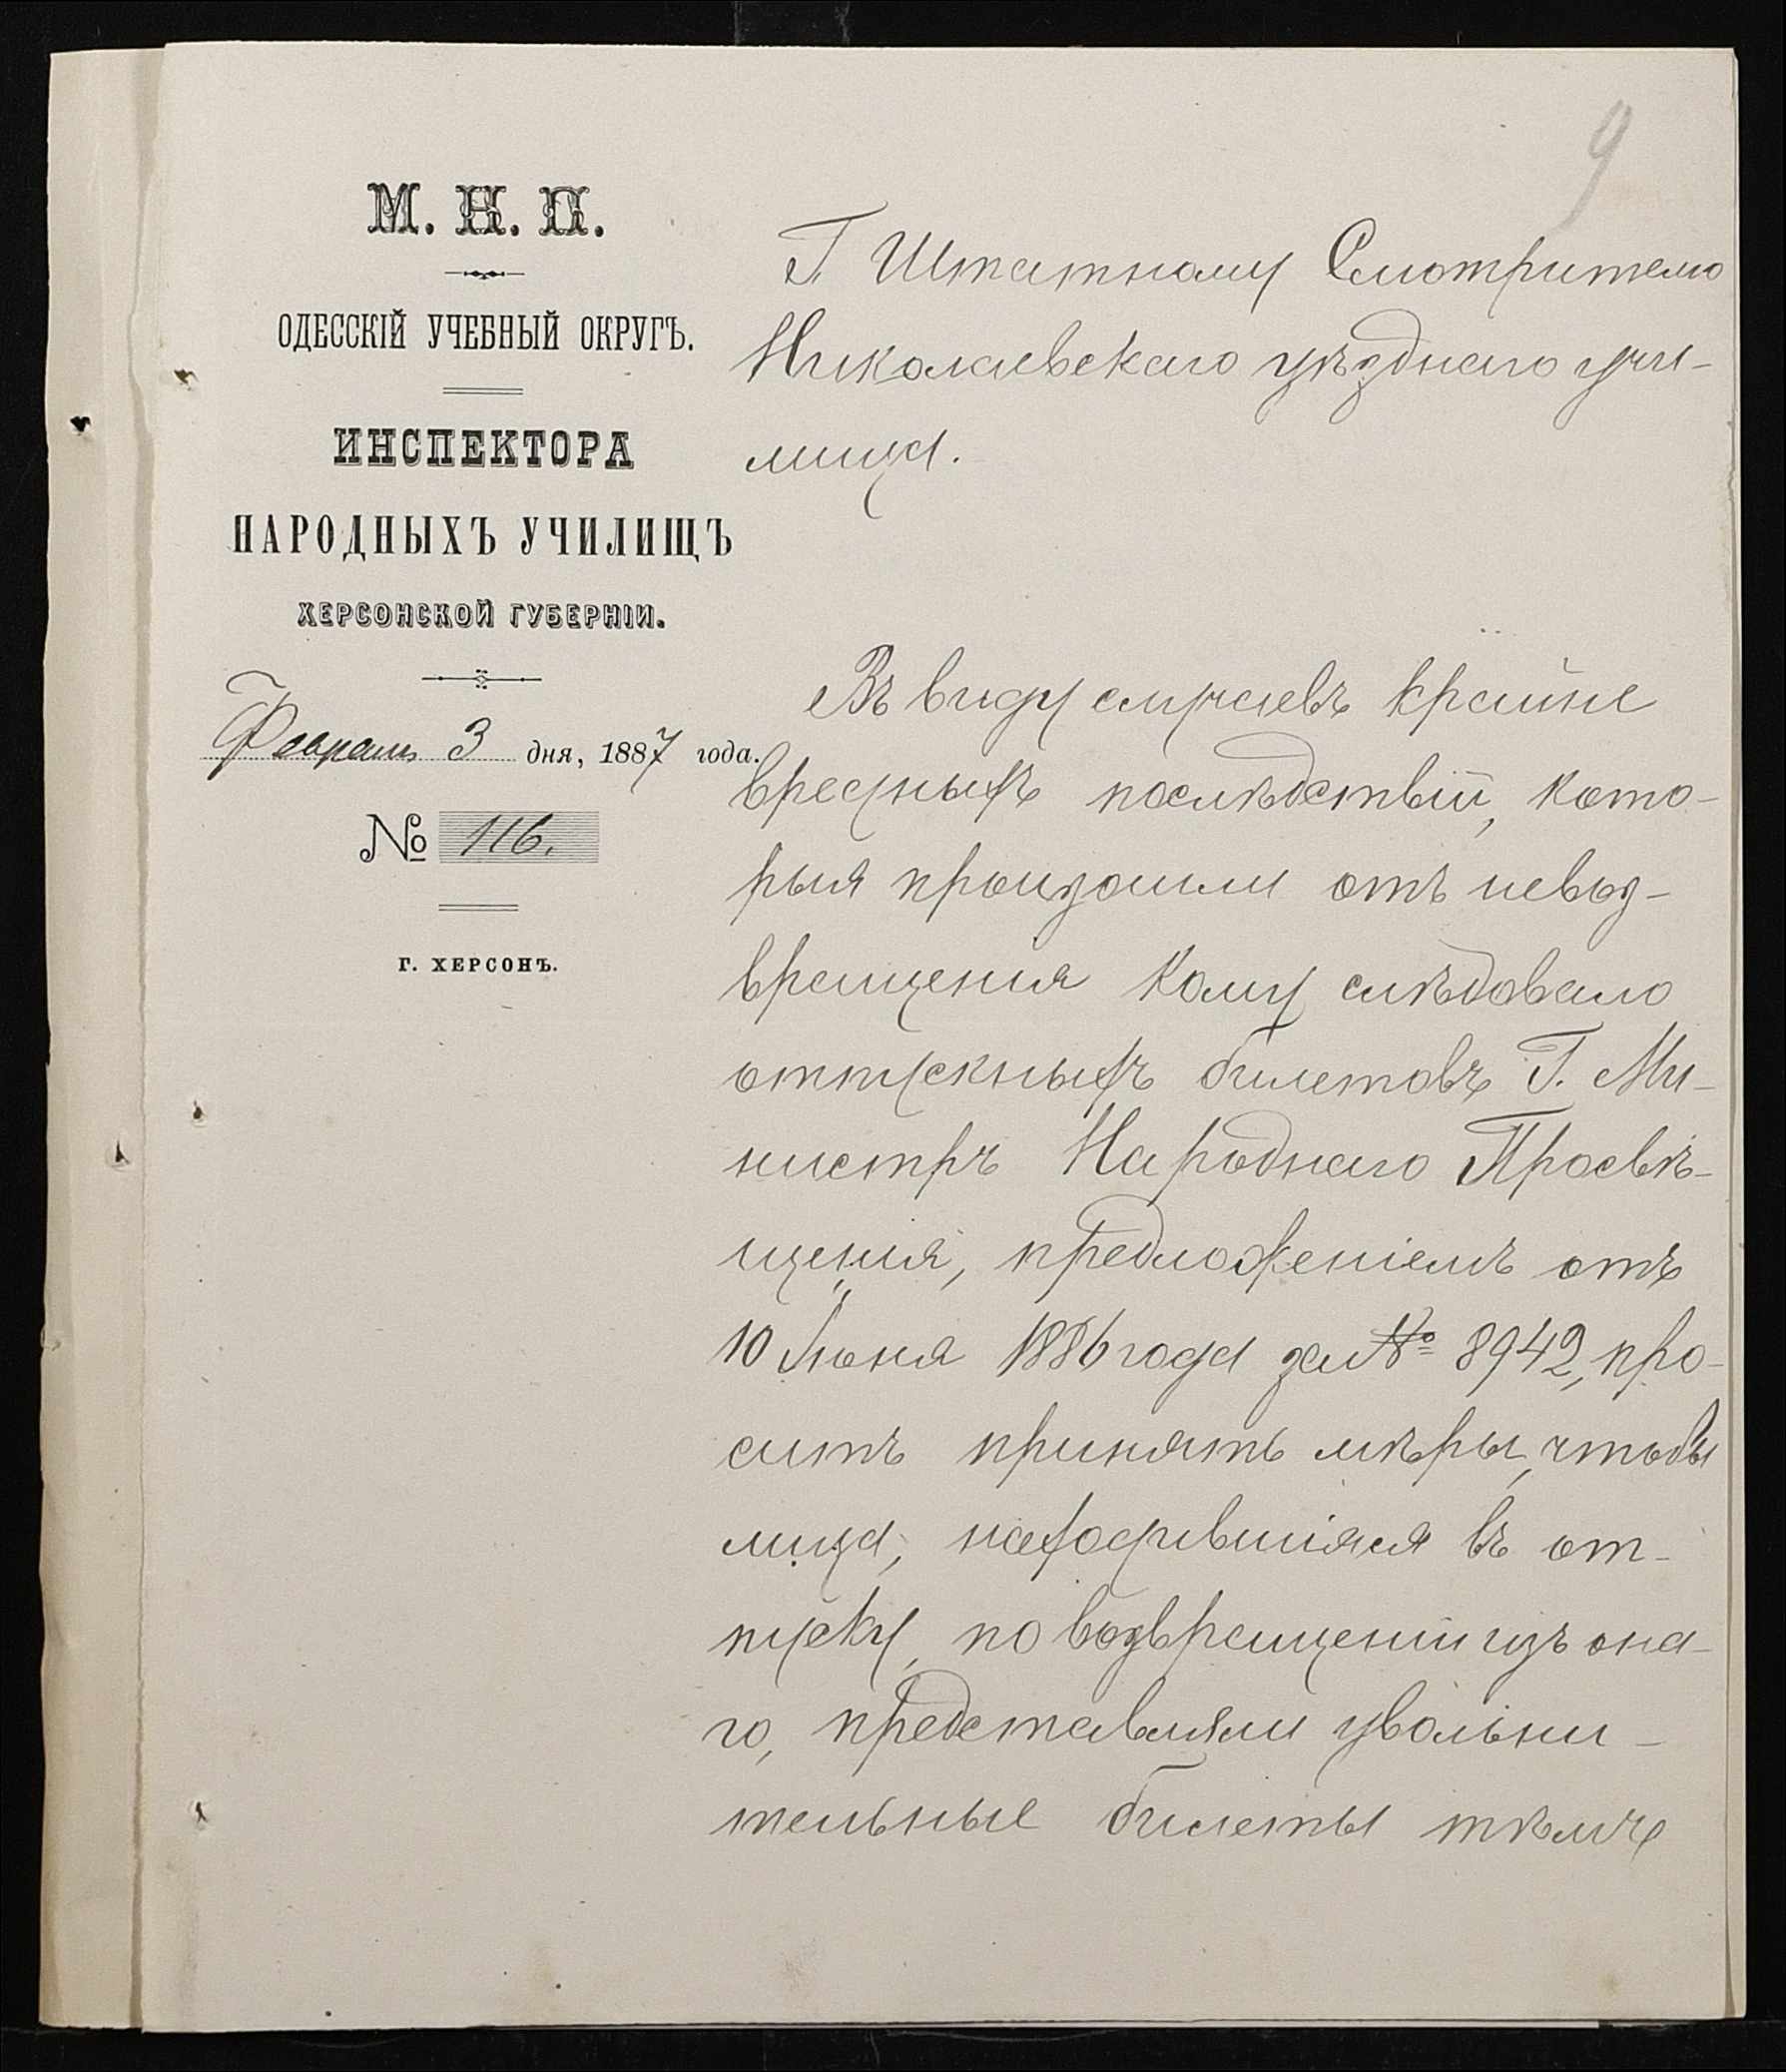 9
М. Н. П.
ОДЕССКІЙ УЧЕБНЫЙ ОКРУГЪ.
ИНСПЕКТОРА
НАРОДНЫХЪ УЧИЛИЩЪ
ХЕРСОНСКОЙ ГУБЕРНІИ.
Февраля 3 дня, 1887 года.
№ 116.
Г. ХЕРСОНЪ.
Г. Штатному Смотрителю
Николаевскаго уѣзднаго учи-
лища.
Въ виду случаевъ крайне
вредныхъ послѣдствій, кото-
рыя произошли отъ невоз-
вращенія кому слѣдовало
отпускныхъ билетовъ Г. Ми-
нистръ Народнаго Просвѣ-
щенія, предложеніемъ отъ
10 Іюня 1886 года за № 8942, про-
ситъ принять мѣры, чтобы
лица, находившіяся въ от-
пуску, по возвращеніи изъ она-
го, представляли увольни-
тельные билеты тѣмъ